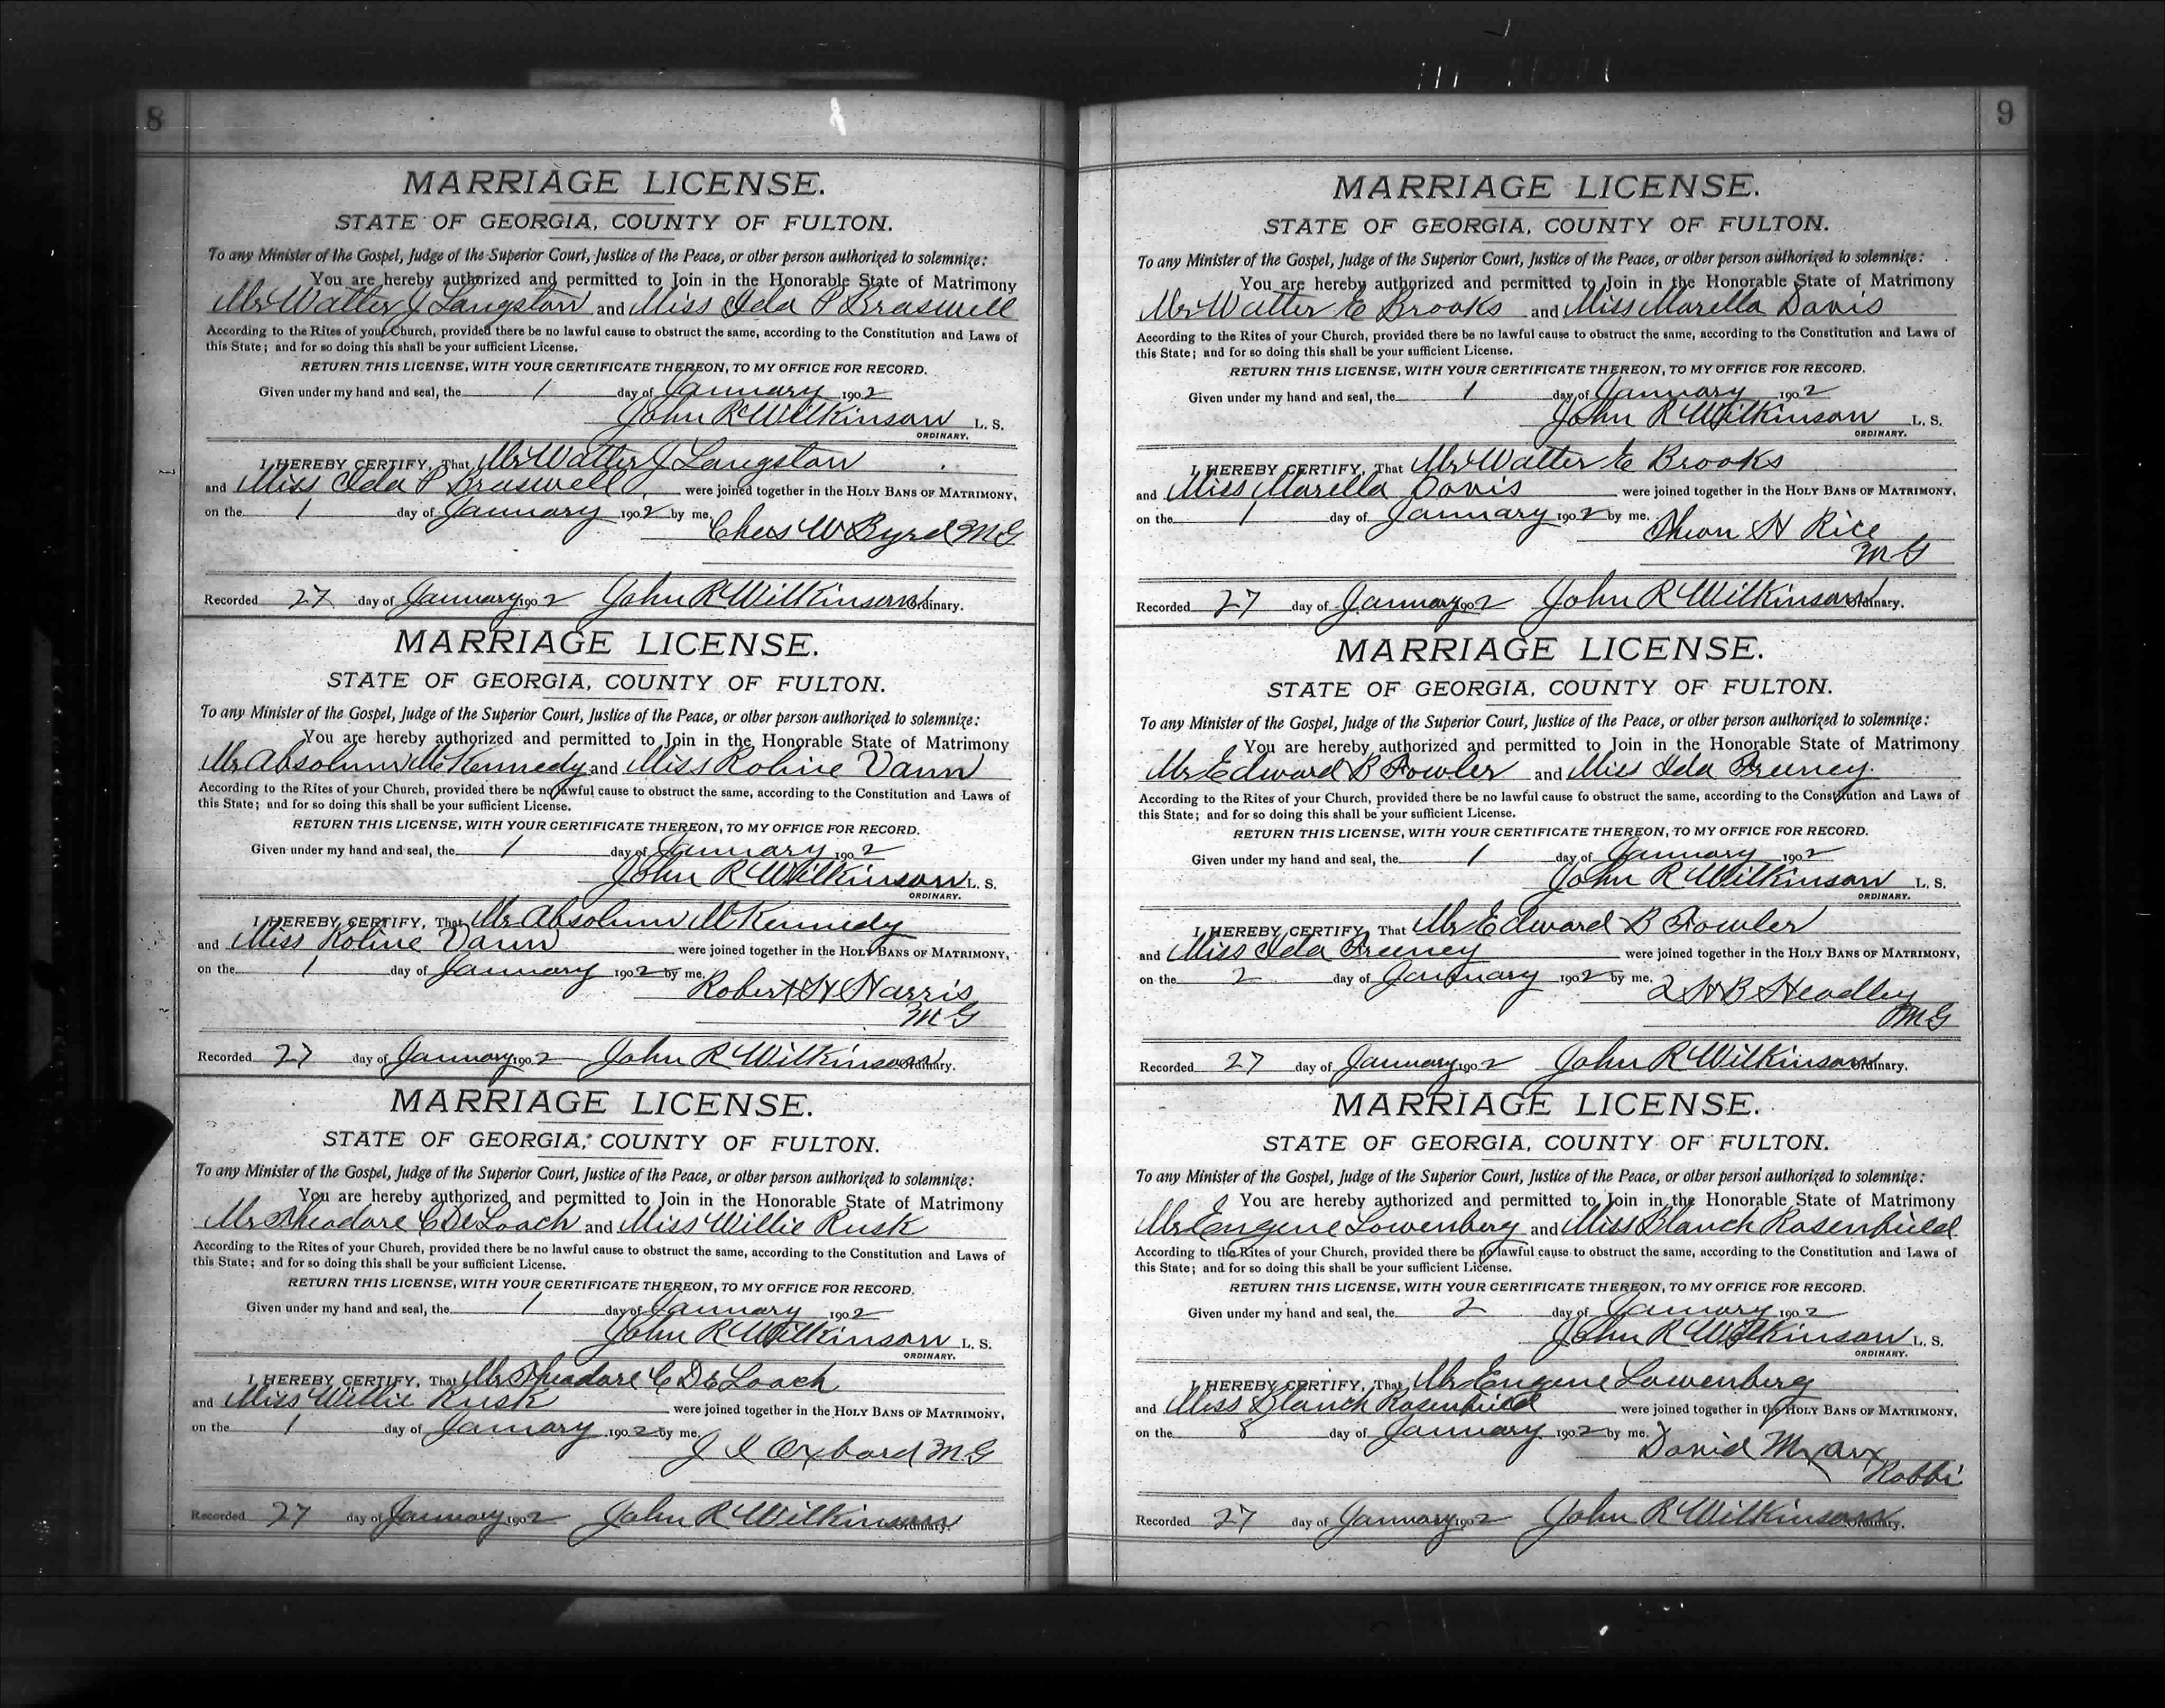 8
MARRIAGE LICENSE.
STATE OF GEORGIA, COUNTY OF FULTON.
To any Minister of the Gospel, Judge of the Superior Court, Justice of the Peace, or other person authorized to solemnize:
You are hereby authorized and permitted to Join in the Honorable State of Matrimony
Mr Walter J Langston and Miss Ida P Braswell
According to the Rites of your Church, provided there be no lawful cause to obstruct the same, according to the Constitution and Laws of
this State; and for so doing this shall be your sufficient License.
RETURN THIS LICENSE, WITH YOUR CERTIFICATE THEREON, TO MY OFFICE FOR RECORD.
Given under my hand and seal, the 1 day of January 1902
John R Wilkinson L. S.
ORDINARY.
I HEREBY CERTIFY, That Mr Walter J Langston
and Miss Ida P Braswell were joined together in the HOLY BANS OF MATRIMONY,
on the 1 day of January 1902 by me,
Chas W Byrd MG
Recorded 27 day of January 1902 John R Wilkinson Ordinary.
MARRIAGE LICENSE.
STATE OF GEORGIA, COUNTY OF FULTON.
To any Minister of the Gospel, Judge of the Superior Court, Justice of the Peace, or other person authorized to solemnize:
You are hereby authorized and permitted to Join in the Honorable State of Matrimony
Mr Absolum McKennedy and Miss Roline Vann
According to the Rites of your Church, provided there be no lawful cause to obstruct the same, according to the Constitution and Laws of
this State; and for so doing this shall be your sufficient License.
RETURN THIS LICENSE, WITH YOUR CERTIFICATE THEREON, TO MY OFFICE FOR RECORD.
Given under my hand and seal, the 1 day of January 1902
John R Wilkinson L. S.
ORDINARY.
I HEREBY CERTIFY, That Mr Absolum McKennedy
and Miss Roline Vann were joined together in the HOLY BANS OF MATRIMONY,
on the 1 day of January 1902 by me,
Robert H Harris
MG
Recorded 27 day of January 1902 John R Wilkinson Ordinary.
MARRIAGE LICENSE.
STATE OF GEORGIA, COUNTY OF FULTON.
To any Minister of the Gospel, Judge of the Superior Court, Justice of the Peace, or other person authorized to solemnize:
You are hereby authorized and permitted to Join in the Honorable State of Matrimony
Mr Theodore C DeLoach and Miss Willie Rusk
According to the Rites of your Church, provided there be no lawful cause to obstruct the same, according to the Constitution and Laws of
this State; and for so doing this shall be your sufficient License.
RETURN THIS LICENSE, WITH YOUR CERTIFICATE THEREON, TO MY OFFICE FOR RECORD.
Given under my hand and seal, the 1 day of January 1902
John R Wilkinson L. S.
ORDINARY.
I HEREBY CERTIFY, That Mr Theodore C DeLoach
and Miss Willie Rusk were joined together in the HOLY BANS OF MATRIMONY,
on the 1 day of January 1902 by me,
J I Oxford MG
Recorded 27 day of January 1902 John R Wilkinson Ordinary.
9
MARRIAGE LICENSE.
STATE OF GEORGIA, COUNTY OF FULTON.
To any Minister of the Gospel, Judge of the Superior Court, Justice of the Peace, or other person authorized to solemnize:
You are hereby authorized and permitted to Join in the Honorable State of Matrimony
Mr Walter E Brooks and Miss Marella Davis
According to the Rites of your Church, provided there be no lawful cause to obstruct the same, according to the Constitution and Laws of
this State; and for so doing this shall be your sufficient License.
RETURN THIS LICENSE, WITH YOUR CERTIFICATE THEREON, TO MY OFFICE FOR RECORD.
Given under my hand and seal, the 1 day of January 1902
John R Wilkinson L. S.
ORDINARY.
I HEREBY CERTIFY, That Mr Walter E Brooks
and Miss Marella Davis were joined together in the HOLY BANS OF MATRIMONY,
on the 1 day of January 1902 by me,
Theron H Rice
MG
Recorded 27 day of January 1902 John R Wilkinson Ordinary.
MARRIAGE LICENSE.
STATE OF GEORGIA, COUNTY OF FULTON.
To any Minister of the Gospel, Judge of the Superior Court, Justice of the Peace, or other person authorized to solemnize:
You are hereby authorized and permitted to Join in the Honorable State of Matrimony
Mr Edward B Fowler and Miss Ida Freeney
According to the Rites of your Church, provided there be no lawful cause to obstruct the same, according to the Constitution and Laws of
this State; and for so doing this shall be your sufficient License.
RETURN THIS LICENSE, WITH YOUR CERTIFICATE THEREON, TO MY OFFICE FOR RECORD.
Given under my hand and seal, the 1 day of January 1902
John R Wilkinson L. S.
ORDINARY.
I HEREBY CERTIFY, That Mr Edward B Fowler
and Miss Ida Freeney were joined together in the HOLY BANS OF MATRIMONY,
on the 2 day of January 1902 by me,
H B Headley
MG
Recorded 27 day of January 1902 John R Wilkinson Ordinary.
MARRIAGE LICENSE.
STATE OF GEORGIA, COUNTY OF FULTON.
To any Minister of the Gospel, Judge of the Superior Court, Justice of the Peace, or other person authorized to solemnize:
You are hereby authorized and permitted to Join in the Honorable State of Matrimony
Mr Eugene Lowenberg and Miss Blanch Rosenfield
According to the Rites of your Church, provided there be no lawful cause to obstruct the same, according to the Constitution and Laws of
this State; and for so doing this shall be your sufficient License.
RETURN THIS LICENSE, WITH YOUR CERTIFICATE THEREON, TO MY OFFICE FOR RECORD.
Given under my hand and seal, the 2 day of January 1902
John R Wilkinson L. S.
ORDINARY.
I HEREBY CERTIFY, That Mr Eugene Lowenberg
and Miss Blanch Rosenfield were joined together in the HOLY BANS OF MATRIMONY,
on the 8 day of January 1902 by me.
David Marx
Rabbi
Recorded 27 day of January 1902 John R Wilkinson Ordinary.